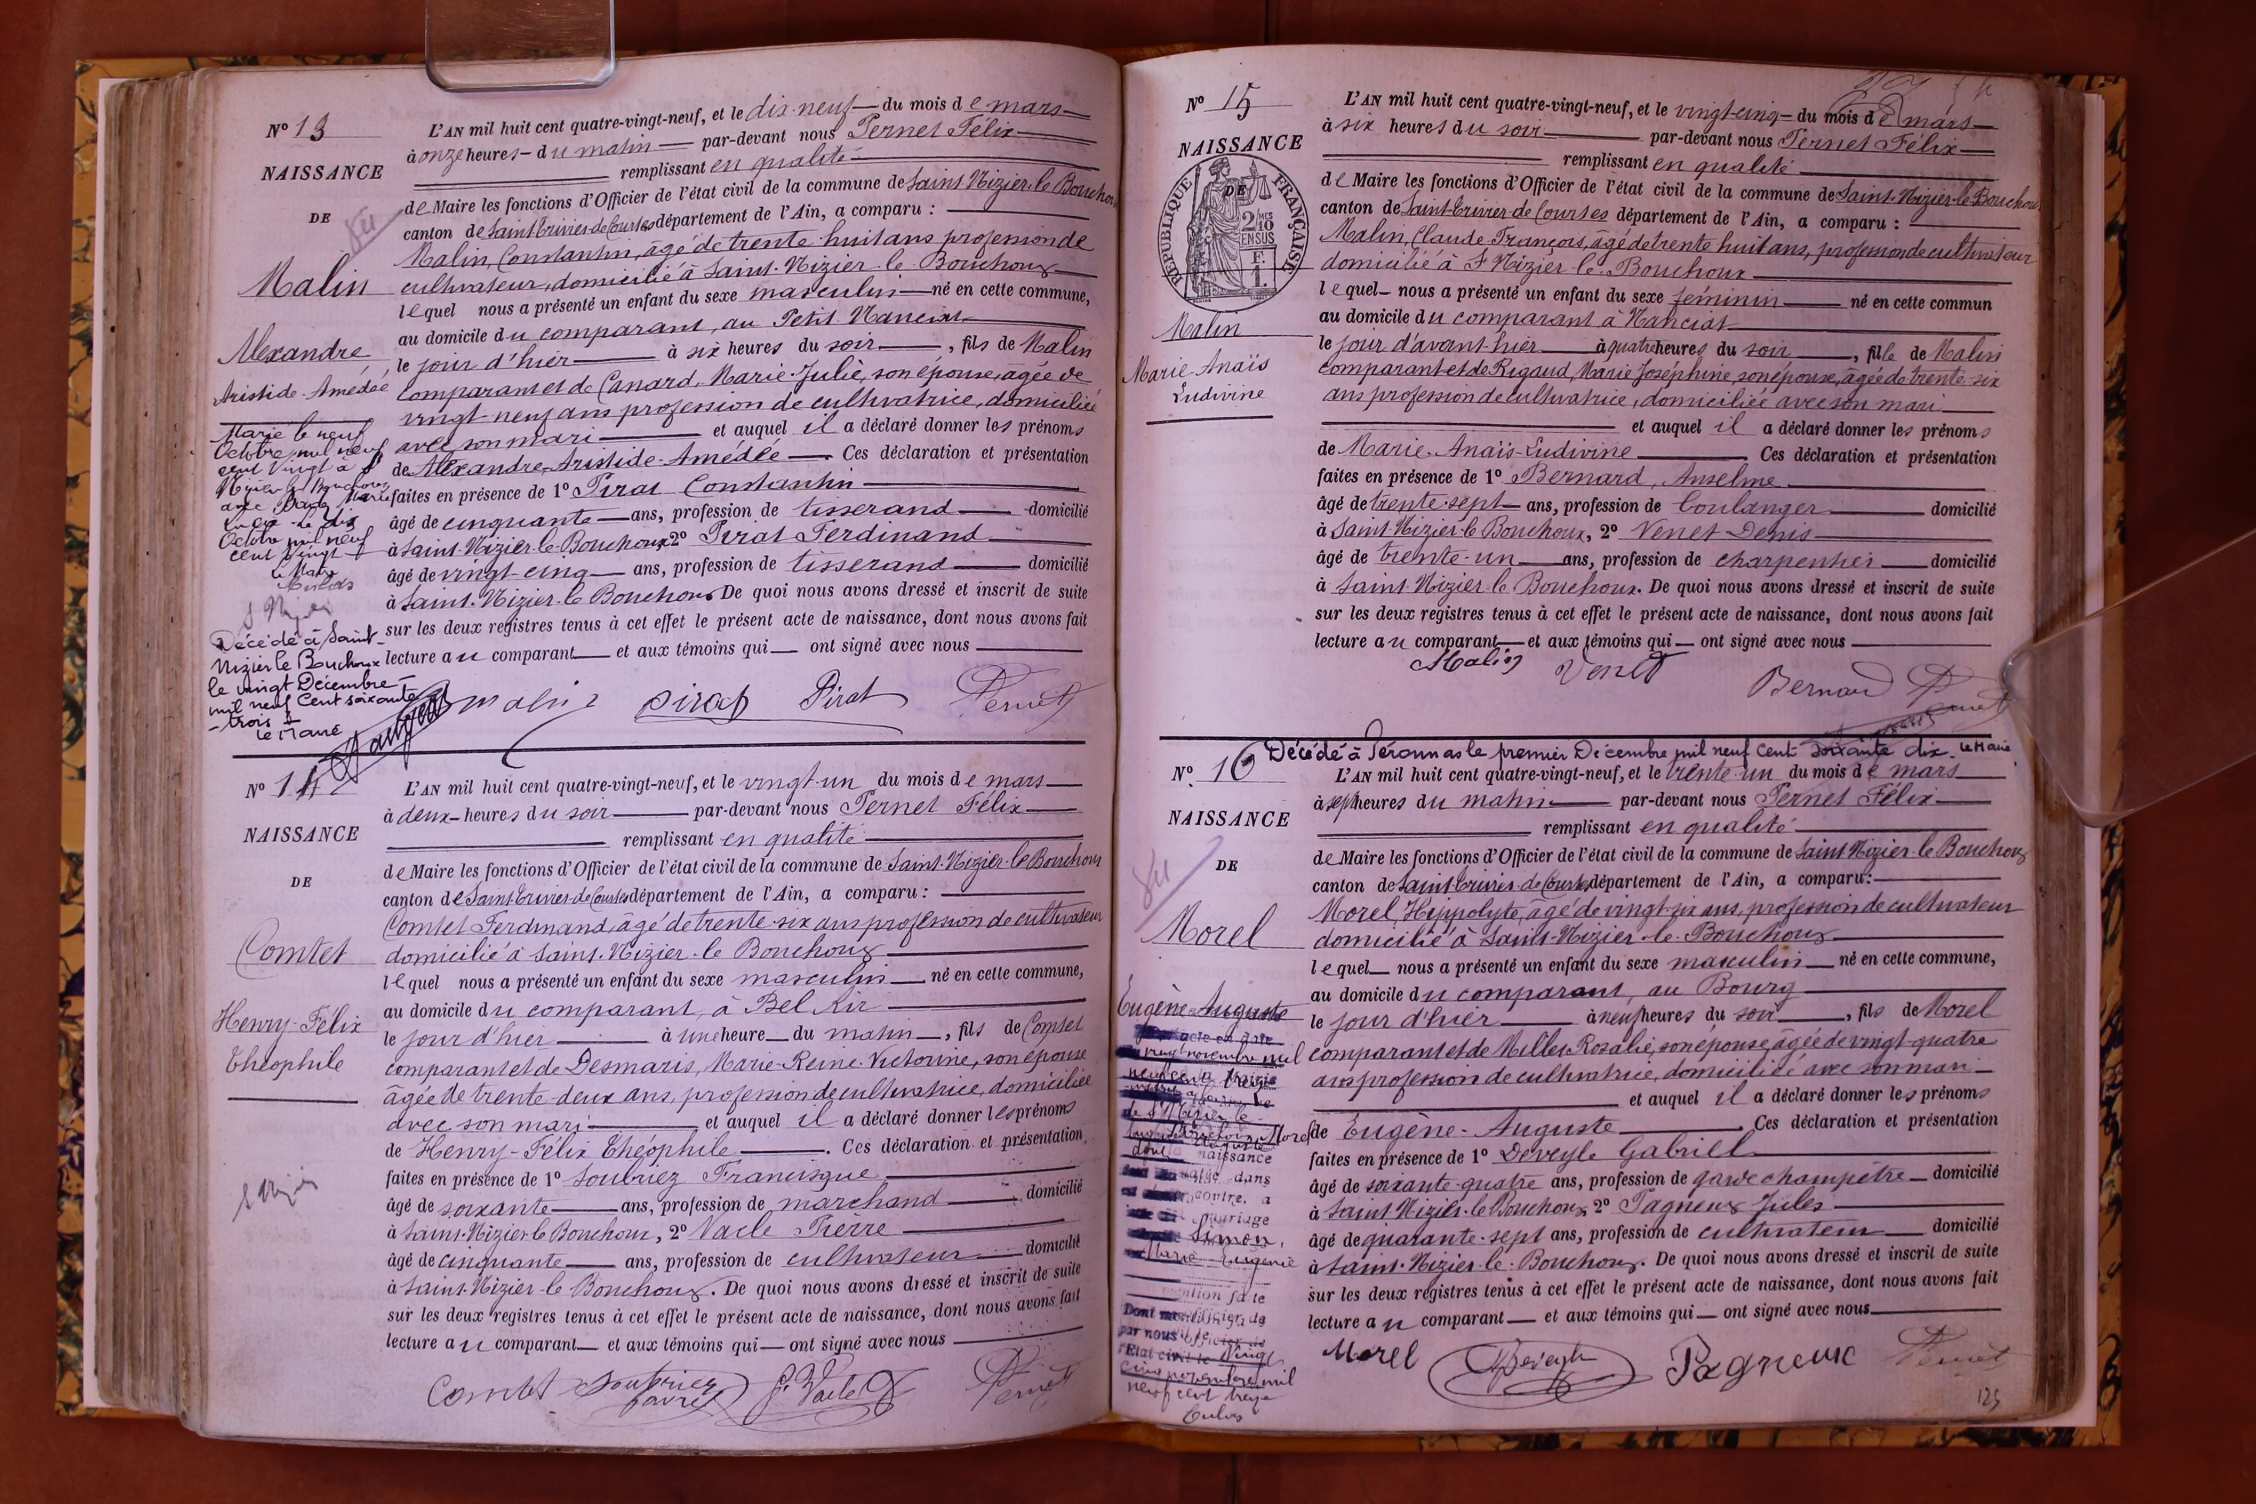 Nº 13
NAISSANCE
DE
Malin
Alexandre
Aristide-Amédée
Marié le neuf
Octobre mil neuf
cent vingt à St
Nizier le Bouchoux
avec
Le dix
Octobre mil neuf
cent vingt
Le Maire
S Nizier
Décédé à Saint-
Nizier le Bouchoux
le vingt Décembre
mil neuf Cent soixante
-trois
Le Maire
L'AN mil huit cent quatre-vingt-neuf, et le dix-neuf du mois de mars
à onze heures du matin par-devant nous Pernet Félix
remplissant en qualité
de Maire les fonctions d'Officier de l'état civil de la commune de Saint-Nizier-le-Bouchoux
canton de Saint Trivier-de-Courtes département de l'Ain, a comparu :
Malin, Constantin, âgé de trente-huit ans profession de
cultivateur, domicilié à Saint-Nizier-le-Bouchoux
lequel nous a présenté un enfant du sexe masculin né en cette commune,
au domicile du comparant, au Petit Nanciat
le jour d'hier à six heures du soir, fils de Malin
comparant et de Canard, Marie-Julie, son épouse, âgée de
vingt-neuf ans profession de cultivatrice, domiciliée
avec son mari et auquel il a déclaré donner les prénoms
de Alexandre-Aristide-Amédée Ces déclaration et présentation
faites en présence de 1º Pirat Constantin
âgé de cinquante ans, profession de tisserand domicilié
à Saint-Nizier-le-Bouchoux 2º Pirat Ferdinand
âgé de vingt-cinq ans, profession de tisserand domicilié
à Saint-Nizier-le-Bouchoux De quoi nous avons dressé et inscrit de suite
sur les deux registres tenus à cet effet le présent acte de naissance, dont nous avons fait
lecture au comparant et aux témoins qui ont signé avec nous
malin pirat Pirat Pernet
Nº 14
NAISSANCE
DE
Comtet
Henry-Félix
Théophile
S Nizier
L'AN mil huit cent quatre-vingt-neuf, et le vingt-un du mois de mars
à deux heures du soir par-devant nous Pernet Félix
remplissant en qualité
de Maire les fonctions d'Officier de l'état civil de la commune de Saint-Nizier-le-Bouchoux
canton de Saint Trivier-de-Courtes département de l'Ain, a comparu :
Comtet Ferdinand, âgé de trente-six ans profession de cultivateur
domicilié à Saint-Nizier-le-Bouchoux
lequel nous a présenté un enfant du sexe masculin né en cette commune,
au domicile du comparant, à Bel Air
le jour d'hier à une heure du matin, fils de Comtet
comparant et de Desmaris, Marie-Reine-Victorine, son épouse
âgée de trente-deux ans, profession de cultivatrice, domiciliée
avec son mari et auquel il a déclaré donner les prénoms
de Henry-Félix Théophile. Ces déclaration et présentation
faites en présence de 1º Soubriez Francisque
âgé de soixante ans, profession de marchand domicilié
à Saint-Nizier-le-Bouchoux, 2º Vacle Pierre
âgé de cinquante ans, profession de cultivateur domicilié
à Saint-Nizier-le-Bouchoux. De quoi nous avons dressé et inscrit de suite
sur les deux registres tenus à cet effet le présent acte de naissance, dont nous avons fait
lecture au comparant et aux témoins qui ont signé avec nous
Comtet Soubriez P. Vacle Pernet
Nº 15
NAISSANCE
DE
RÉPUBLIQUE FRANÇAISE
2/10 MES
EN SUS
F.
1.
Malin
Marie Anaïs
Ludivine
L'AN mil huit cent quatre-vingt-neuf, et le vingt-cinq du mois de mars
à six heures du soir par-devant nous Pernet Félix
remplissant en qualité
de Maire les fonctions d'Officier de l'état civil de la commune de Saint-Nizier-le-Bouchoux
canton de Saint-Trivier-de-Courtes département de l'Ain, a comparu :
Malin, Claude-François, âgé de trente huit ans, profession de cultivateur
domicilié à St Nizier-le-Bouchoux
lequel nous a présenté un enfant du sexe féminin né en cette commun
au domicile du comparant à Nanciat
le jour d'avant-hier à quatre heures du soir, fille de Malin
comparant et de Rigaud, Marie Joséphine, son épouse, âgée de trente-six
ans profession de cultivatrice, domiciliée avec son mari
et auquel il a déclaré donner les prénoms
de Marie-Anaïs-Ludivine Ces déclaration et présentation
faites en présence de 1º Bernard, Anselme
âgé de trente-sept ans, profession de boulanger domicilié
à Saint-Nizier-le-Bouchoux, 2º Venet Denis
âgé de trente-un ans, profession de charpentier domicilié
à Saint-Nizier-le-Bouchoux. De quoi nous avons dressé et inscrit de suite
sur les deux registres tenus à cet effet le présent acte de naissance, dont nous avons fait
lecture au comparant et aux témoins qui ont signé avec nous
Malin Venet Bernard Pernet
Décédé à Péronnas le premier Décembre mil neuf Cent soixante dix. Le Maire
Nº 16
NAISSANCE
DE
Morel
Eugène-Auguste
acte en date
vingt novembre mil
neuf cent treize
de St Nizier le
Morel
Auguste
dont la naissance
dans
contre, a
mariage
Simon,
Marie Eugénie
mention faite
par nous Officier de
l'Etat civil le vingt
cinq novembre mil
neuf cent treize
L'AN mil huit cent quatre-vingt-neuf, et le trente-un du mois de mars
à sept heures du matin par-devant nous Pernet Félix
remplissant en qualité
de Maire les fonctions d'Officier de l'état civil de la commune de Saint Nizier-le-Bouchoux
canton de Saint-Trivier-de-Courtes département de l'Ain, a comparu :
Morel, Hippolyte, âgé de vingt-six ans, profession de cultivateur
domicilié à Saint-Nizier-le-Bouchoux
lequel nous a présenté un enfant du sexe masculin né en cette commune,
au domicile du comparant, au Bourg
le jour d'hier à neuf heures du soir, fils de Morel
comparant et de Millet Rosalie, son épouse, âgée de vingt-quatre
ans profession de cultivatrice, domiciliée avec son mari
et auquel il a déclaré donner les prénoms
de Eugène-Auguste Ces déclaration et présentation
faites en présence de 1º Deveyle Gabriel
âgé de soixante-quatre ans, profession de garde champêtre domicilié
à Saint Nizier-le-Bouchoux 2º Pagneux Jules
âgé de quarante-sept ans, profession de cultivateur domicilié
à Saint-Nizier-le-Bouchoux. De quoi nous avons dressé et inscrit de suite
sur les deux registres tenus à cet effet le présent acte de naissance, dont nous avons fait
lecture au comparant et aux témoins qui ont signé avec nous
Morel Deveyle Pagneux Pernet
125